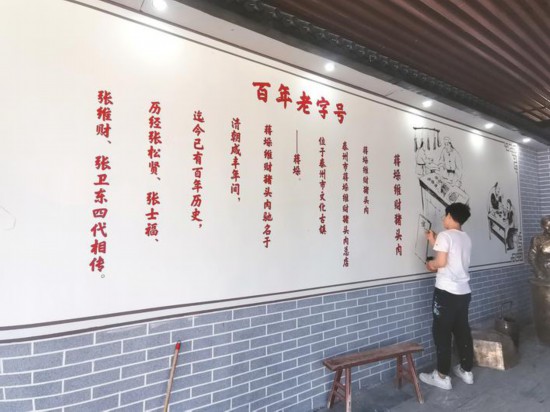 百年老字号
蒋垛维财猪头肉
蒋垛维财猪头肉
泰州市蒋垛维财猪头肉总店
位于泰州市文化古镇
——蒋垛。
蒋垛维财猪头肉驰名于
清朝咸丰年间，
迄今已有百年历史，
历经张松贤、张士福、
张维财、张卫东四代相传。